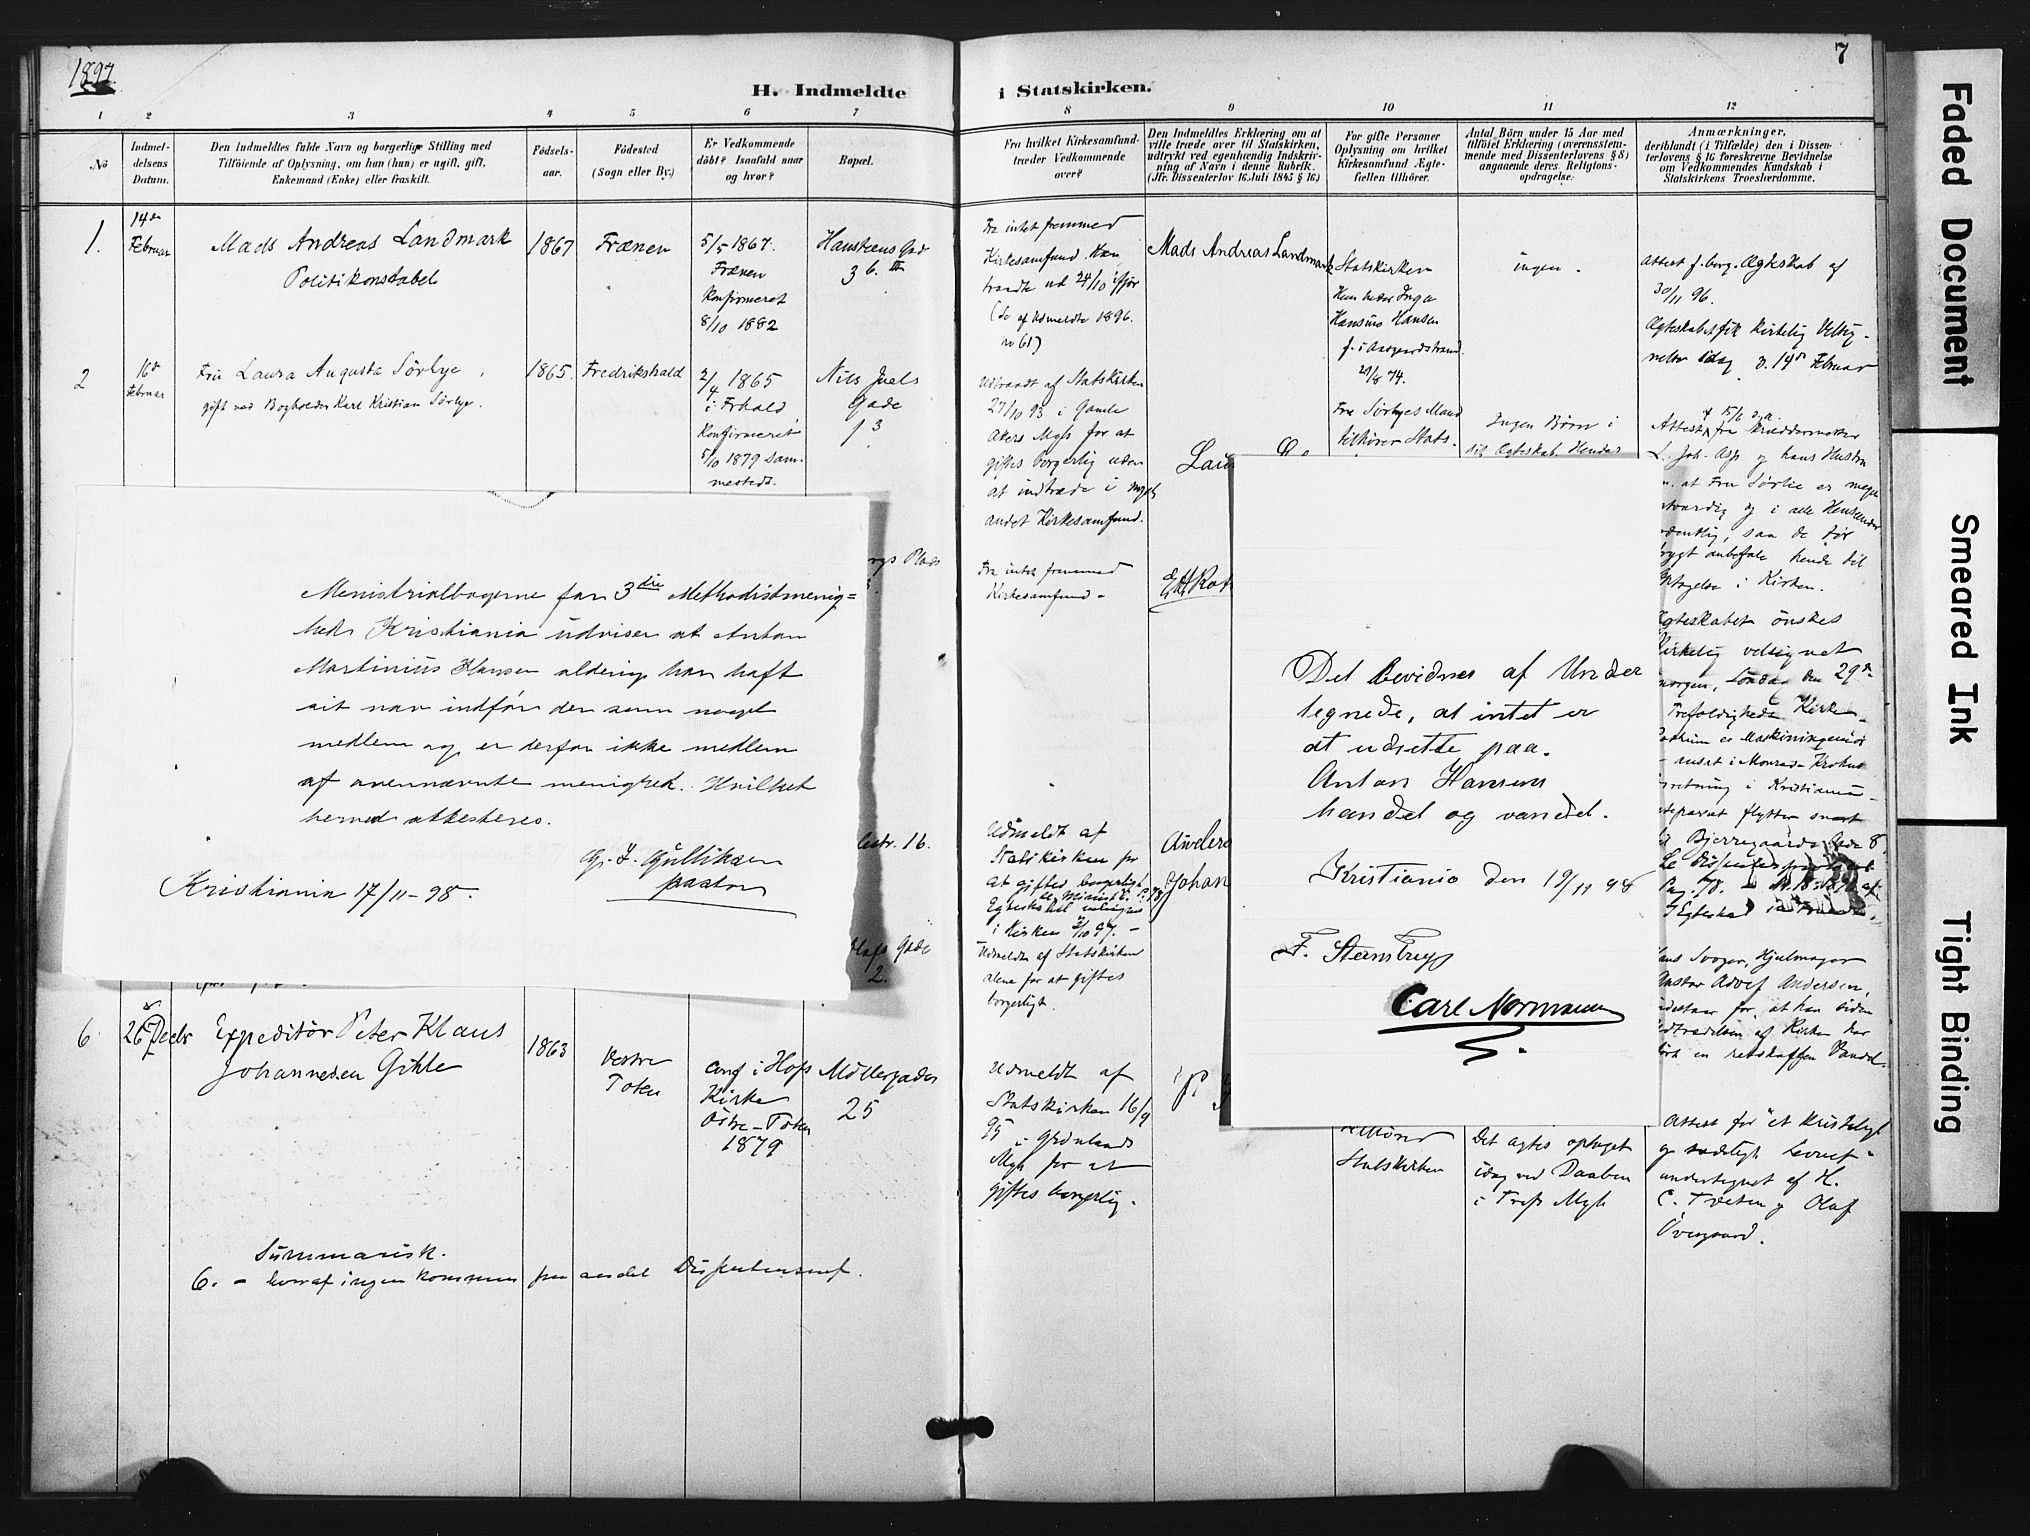 1897.
7
H. Indmeldte i Statskirken.
1 2 3 4 5 6 7 8 9 10 11 12
No
Indmel-
delsens
Datum.
Den Indmeldtes fulde Navn og borgerlige Stilling med
Tilföiende af Oplysning, om han (hun) er ugift, gift,
Enkemand (Enke) eller fraskilt.
Födsels-
aar.
Födested
(Sogn eller By.)
Er Vedkommende
döbt? Isaafald naar
og hvor?
Bopæl.
Fra hvilket Kirkesamfund-
træder Vedkommende
over?
Den Indmeldtes Erklæring om at
ville træde over til Statskirken,
udtrykt ved egenhændig Indskriv-
ning af Navn i denne Rubrik.
(Jfr. Dissenterlov 16. Juli 1845 § 16)
For gifte Personer
Oplysning om hvilket
Kirkesamfund Ægte-
fællen tilhörer.
Antal Börn under 15 Aar med
tilföiet Erklæring (overensstem-
mende med Dissenterlovens § 8)
angaaende deres Religions-
opdragelse.
Anmærkninger,
deriblandt (i Tilfælde) den i Dissen-
terlovens § 16 foreskrevne Bevidnelse
om Vedkommendes Kundskab i
Statskirkens Troeslærdomme.
1.
14de
Februar
Mads Andreas Landmark
Politikonstabel
1867
Frænen
5/5 1867.
Frænen
Konfirmeret
8/10 1882
Hansteens Gad
3 b. III
Fra intet fremmed
Kirkesamfund. Han
traadte ud 24/10 ifjor
(se af Udmeldte 1896.
no 61)
Mads Andreas Landmark
Statskirken
Hun heder Inga
Hansine Hansen
f. i Aasgaardstrand
ingen.
Attest f. borg. Ægteskab af
30/11 96.
Ægteskabet fik kirkelig Velsig-
nelse idag d. 14de Februar
2
16de
Februar
Fru Laura Augusta Sörbye,
gift med Bogholder Karl Kristian Sörbye.
1865.
Fredrikshald
2/4 1865
i Frhald
Konfirmeret
5/10 1879 sam-
mesteds.
Nils Juels
Gade
Udtraadt af Statskirken
27/10 93 i Gamle
Akers Mgh for at
giftes borgerlig uden
at indtræde i noget
andet Kirkesamfund.
Fru Sörbyes Mand
tilhörer Stats-
Ingen Börn i
Attest fra Skræddermester
L. Joh. Asp og hans Hustru
at Fru Sörbie er meget
og i alle Henseender
saa de tör
trygt anbefale hende til
Optagelse i Kirken.
Plads
Fra intet fremmed
Kirkesamfund-
Ægteskabet önskes
Kirkelig velsignet
imorgen, Söndag den 29de
Trefoldigheds Kirke.
er Maskiningeniör
ansat i Monrad-Krohns
i Kristiania
flytter snart
Bjerregaards Gade 8,
Pag. 78.
Ministerialbogerne for 3die Methodistmenig=
hed Kristiania udviser at Anton
Martinius Hansen aldering har haft
sit nav indför der som noget
medlem og er derfor ikke medlem
af ovennævnte menighed. Hvilket
herved attesteres.
G. I. Gulliksen
pastor
Kristiania 17/11-98.
Det Bevidnes af Under
tegnede, at intet er
at udsette paa.
Anton Hansens
handel og vandel.
Kristiania den 19/11 98
F. Steenstrup
Carl Normann
16.
Udmeldt af
Statskirken for
at giftes borgerligt
i Kirken 2/10 97.-
Johan
Gade
2.
Udmeldt af Statskirken
alene for at giftes
borgerligt.
Hans Svoger, Hjulmager
Gustav Adolf Andersen,
indestaar for, at han siden
Udtrædelsen af Kirken har
fört en retskaffen Vandel.
6
26 Decbr
Expeditör Peter Klaus
Johannesen Gihle
1863
Vestre
Toten
conf i Hofs
Kirke
Östre-Toten
1879
Möllergaden
25
Udmeldt af
Statskirken 16/9
95 i Grönlands
Mgh for at
giftes borgerlig.
tilhörer
Statskirken
Det agtes optaget
idag ved Daaben
i Tref. Mgh
Attest for "et kristeligt
og sædeligt Levnet"
undertegnet af H.
C. Tveten og Olaf
Övergaard.
Summarisk.
6. - hvoraf ingen kommen fra andet Dissentersamf.
Faded Document
Smeared Ink
Tight Binding